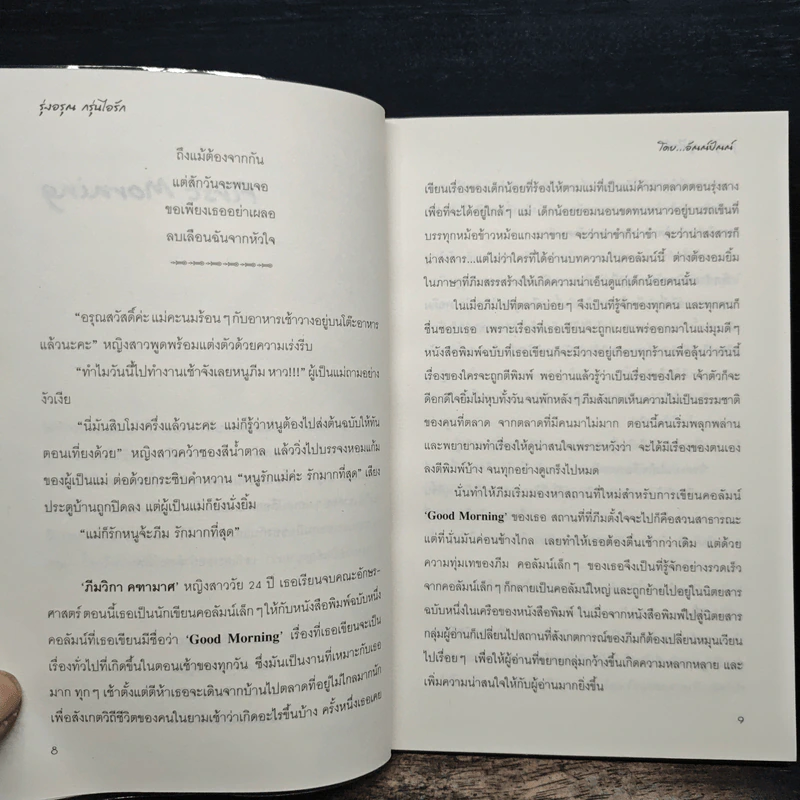 รุ่งอรุณ กรุ่นไอรัก
ถึงแม้ต้องจากกัน
แต่สักวันจะพบเจอ
ขอเพียงเธออย่าเผลอ
ลบเลือนฉันจากหัวใจ
"อรุณสวัสดิ์ค่ะ แม่คะนมร้อนๆ กับอาหารเช้าวางอยู่บนโต๊ะอาหาร
แล้วนะคะ" หญิงสาวพูดพร้อมแต่งตัวด้วยความเร่งรีบ
"ทำไมวันนี้ไปทำงานเช้าจังเลยหนูภีม หาว!!!" ผู้เป็นแม่ถามอย่าง
งัวเงีย
"นี่มันสิบโมงครึ่งแล้วนะคะ แม่ก็รู้ว่าหนูต้องไปส่งต้นฉบับให้ทัน
ตอนเที่ยงด้วย" หญิงสาวคว้าซองสีน้ำตาล แล้ววิ่งไปบรรจงหอมแก้ม
ของผู้เป็นแม่ ต่อด้วยกระซิบคำหวาน "หนูรักแม่ค่ะ รักมากที่สุด" เสียง
ประตูบ้านถูกปิดลง แต่ผู้เป็นแม่ก็ยังนั่งยิ้ม
"แม่ก็รักหนูจ้ะภีม รักมากที่สุด"
'ภีมวิกา คฑามาศ' หญิงสาววัย 24 ปี เธอเรียนจบคณะอักษร-
ศาสตร์ ตอนนี้เธอเป็นนักเขียนคอลัมน์เล็กๆ ให้กับหนังสือพิมพ์ฉบับหนึ่ง
คอลัมน์ที่เธอเขียนมีชื่อว่า 'Good Morning' เรื่องที่เธอเขียนจะเป็น
เรื่องทั่วไปที่เกิดขึ้นในตอนเช้าของทุกวัน ซึ่งมันเป็นงานที่เหมาะกับเธอ
มาก ทุกๆ เช้าตั้งแต่ตีห้าเธอจะเดินจากบ้านไปตลาดที่อยู่ไม่ไกลมากนัก
เพื่อสังเกตวิถีชีวิตของคนในยามเช้าว่าเกิดอะไรขึ้นบ้าง ครั้งหนึ่งเธอเคย
8
โดย...อัณณ์ปัณณ์
เขียนเรื่องของเด็กน้อยที่ร้องไห้ตามแม่ที่เป็นแม่ค้ามาตลาดตอนรุ่งสาง
เพื่อที่จะได้อยู่ใกล้ๆ แม่ เด็กน้อยยอมนอนขดทนหนาวอยู่บนรถเข็นที่
บรรทุกหม้อข้าวหม้อแกงมาขาย จะว่าน่าขำก็น่าขำ จะว่าน่าสงสารก็
น่าสงสาร...แต่ไม่ว่าใครที่ได้อ่านบทความในคอลัมน์นี้ ต่างต้องอมยิ้ม
ในภาษาที่ภีมสรรสร้างให้เกิดความน่าเอ็นดูแก่เด็กน้อยคนนั้น
ในเมื่อภีมไปที่ตลาดบ่อยๆ จึงเป็นที่รู้จักของทุกคน และทุกคนก็
ชื่นชอบเธอ เพราะเรื่องที่เธอเขียนจะถูกเผยแพร่ออกมาในแง่มุมดีๆ
หนังสือพิมพ์ฉบับที่เธอเขียนก็จะมีวางอยู่เกือบทุกร้านเพื่อลุ้นว่าวันนี้
เรื่องของใครจะถูกตีพิมพ์ พออ่านแล้วรู้ว่าเป็นเรื่องของใคร เจ้าตัวก็จะ
ดีอกดีใจยิ้มไม่หุบทั้งวัน จนพักหลังๆ ภีมสังเกตเห็นความไม่เป็นธรรมชาติ
ของคนที่ตลาด จากตลาดที่มีคนมาไม่มาก ตอนนี้คนเริ่มพลุกพล่าน
และพยายามทำเรื่องให้ดูน่าสนใจเพราะหวังว่า จะได้มีเรื่องของตนเอง
ลงตีพิมพ์บ้าง จนทุกอย่างดูเกร็งไปหมด
นั่นทำให้ภีมเริ่มมองหาสถานที่ใหม่สำหรับการเขียนคอลัมน์
'Good Morning' ของเธอ สถานที่ที่ภีมตั้งใจจะไปก็คือสวนสาธารณะ
แต่ที่นั่นมันค่อนข้างไกล เลยทำให้เธอต้องตื่นเช้ากว่าเดิม แต่ด้วย
ความทุ่มเทของภีม คอลัมน์เล็กๆ ของเธอจึงเป็นที่รู้จักอย่างรวดเร็ว
จากคอลัมน์เล็กๆ ก็กลายเป็นคอลัมน์ใหญ่ และถูกย้ายไปอยู่ในนิตยสาร
ฉบับหนึ่งในเครือของหนังสือพิมพ์ ในเมื่อจากหนังสือพิมพ์ไปสู่นิตยสาร
กลุ่มผู้อ่านก็เปลี่ยนไปสถานที่สังเกตการณ์ของภีมก็ต้องเปลี่ยนหมุนเวียน
ไปเรื่อยๆ เพื่อให้ผู้อ่านที่ขยายกลุ่มกว้างขึ้นเกิดความหลากหลาย และ
เพิ่มความน่าสนใจให้กับผู้อ่านมากยิ่งขึ้น
9